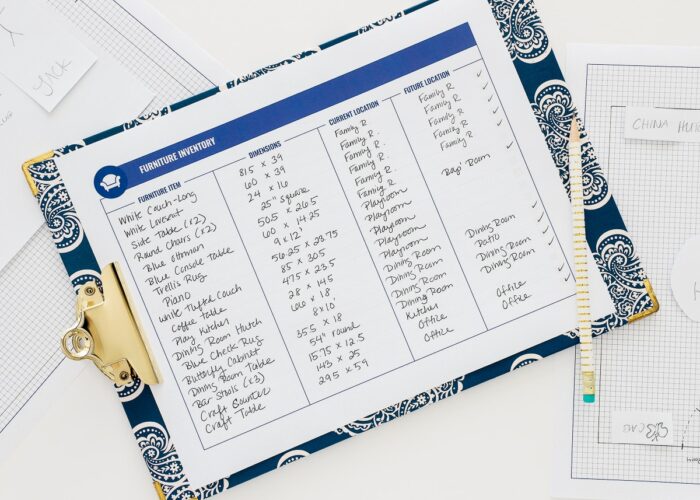 FURNITURE INVENTORY
FURNITURE ITEM
White Couch-Long
White Loveseat
Side Table (x2)
Round Chairs (x2)
Blue Ottoman
Blue Console Table
Trellis Rug
Piano
White Tuftd Couch
Coffee Table
Play Kitchen
Dining Room Hutch
Blue Check Rug
Butterfly Cabinet
Dining Room Table
Bar Stools (x3)
Craft Counter
Craft Table
DIMENSIONS
81.5 x 39
60 x 39
24 x 16
25" square
50.5 x 26.5
60 x 14.25
9 x 12'
56.25 x 23.75
85 x 30.5
47.5 x 23.5
28 x 14.5
66 x 18
8x10'
35.5 x 18
54" round
15.75 x 12.5
143 x 25
29.5 x 59
CURRENT LOCATION
Family R.
Family R.
Family R.
Family R.
Family R.
Family R.
Playroom
Playroom
Playroom
Playroom
Playroom
Dining Room
Dining Room
Dining Room
Dining Room
Kitchen
Office
Office
FUTURE LOCATION
Family R.
Family R.
Family R.
Family R.
Family R.
Room
Dining Room
Patio
Dining Room
Dining Room
Office
Office
CHINA